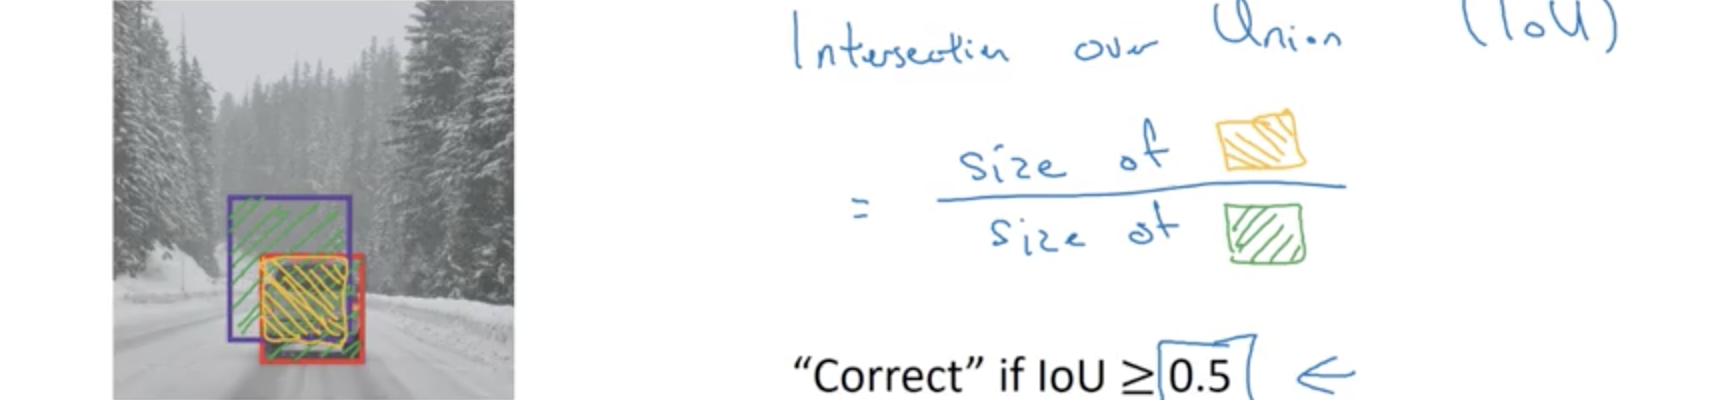 Intersection over Union (IoU)
size of
=
size of
“Correct” if IoU ≥ 0.5 ←